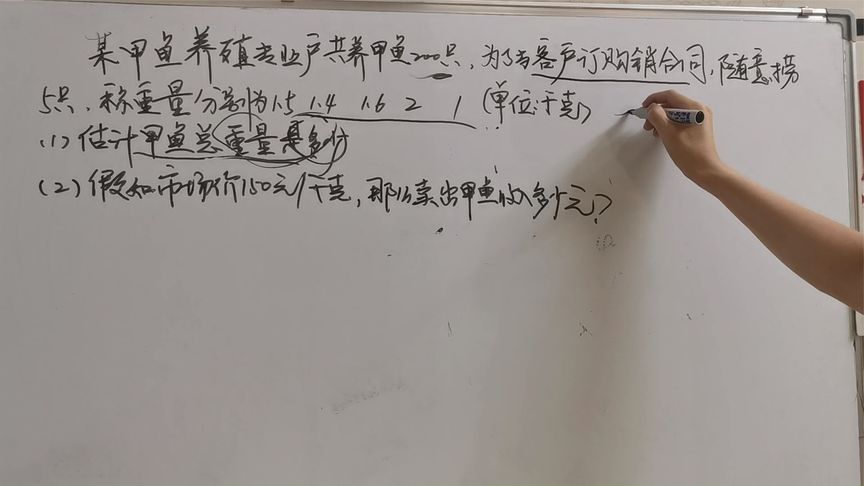 某甲鱼养殖专业户共养甲鱼200只,为了与客户订购销合同,随意捞
5只,称重量分别为1.5 1.4 1.6 2 1 (单位:千克)
(1) 估计甲鱼总重量是多少
(2) 假如市场价150元/千克,那么卖出甲鱼收入多少元?